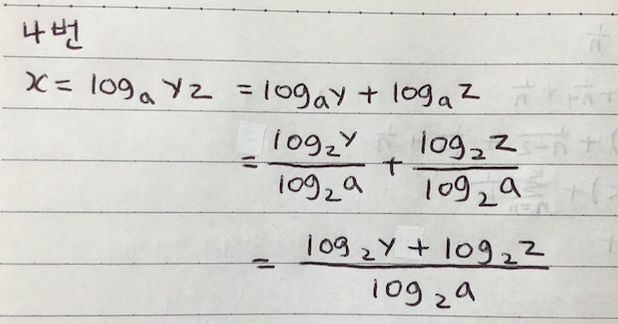 4번
x = logₐ yz = logₐy + logₐz
= log₂y / log₂a + log₂z / log₂a
= (log₂y + log₂z) / log₂a